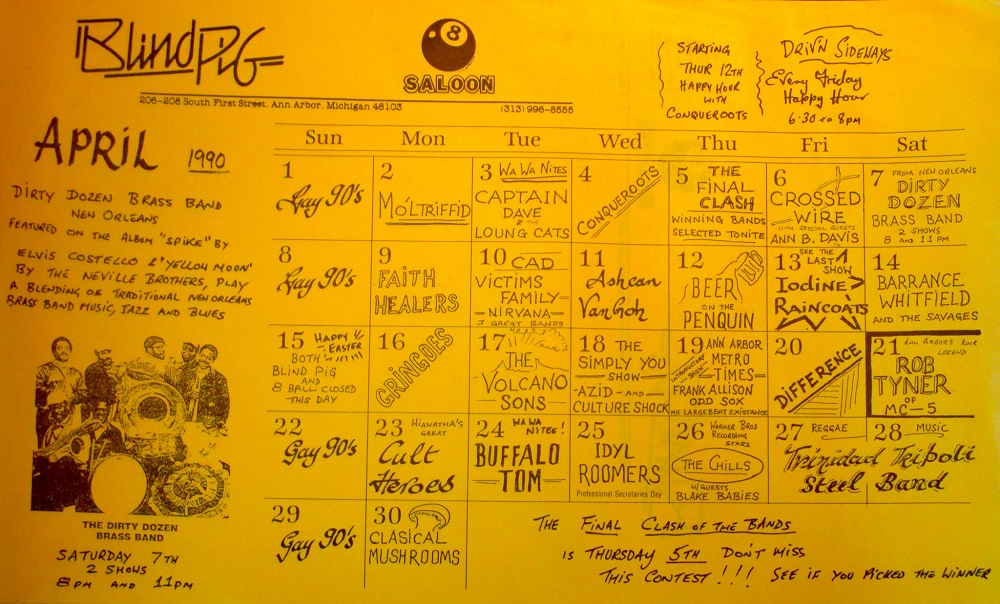 Blind Pig
8
SALOON
206-208 South First Street, Ann Arbor, Michigan 48103
(313) 996-8555
STARTING
THUR 12TH
HAPPY HOUR
WITH
CONQUEROOTS
DRIV'N SIDEWAYS
Every Friday
Happy Hour
6:30 to 8PM
APRIL 1990
DIRTY DOZEN BRASS BAND
NEW ORLEANS
FEATURED ON THE ALBUM "SPIKE" BY
ELVIS COSTELLO & "YELLOW MOON"
BY THE NEVILLE BROTHERS, PLAY
A BLENDING OF TRADITIONAL NEW ORLEANS
BRASS BAND MUSIC, JAZZ AND BLUES
THE DIRTY DOZEN
BRASS BAND
SATURDAY 7TH
2 SHOWS
8PM AND 11PM
Sun Mon Tue Wed Thu Fri Sat
1
Gay 90's
2
MOL'TRIFFID
3 WA WA NITES
CAPTAIN
DAVE
& THE
LOUNG CATS
4
CONQUEROOTS
5 THE
FINAL
CLASH
WINNING BANDS
SELECTED TONITE
6
CROSSED
WIRE
WITH SPECIAL GUESTS
ANN B. DAVIS
7 FROM NEW ORLEANS
DIRTY
DOZEN
BRASS BAND
2 SHOWS
8 AND 11 PM
8
Gay 90's
9
FAITH
HEALERS
10 CAD
VICTIMS
FAMILY
NIRVANA
3 GREAT BANDS
11
Ashcan
VanGoh
12
BEER
ON THE
PENQUIN
13 SEE THE
LAST
SHOW
Iodine
Raincoats
14
BARRANCE
WHITFIELD
AND THE SAVAGES
15 HAPPY
EASTER
BOTH
BLIND PIG
AND
8 BALL CLOSED
THIS DAY
16
GRINGOES
17
THE
VOLCANO
SONS
18 THE
SIMPLY YOU
SHOW
AZID AND
CULTURE SHOCK
19 ANN ARBOR
METRO
TIMES
SHOW
FRANK ALLISON
ODD SOX
MR LARGE BEAT EXISTANCE
20
DIFFERENCE
21 ANN ARBOR'S ROCK
LEGEND
ROB
TYNER
OF
MC-5
22
Gay 90's
23 HIAWATHA'S
GREAT
Cult
Heroes
24 WA WA
NITES!
BUFFALO
TOM
25
IDYL
ROOMERS
Professional Secretaries Day
26 WARNER BROS
RECORDING
STARS
THE CHILLS
W/GUESTS
BLAKE BABIES
27 REGGAE 28 MUSIC
Trinidad Tripoli
Steel Band
29
Gay 90's
30
CLASICAL
MUSHROOMS
THE FINAL CLASH OF THE BANDS
IS THURSDAY 5TH DON'T MISS
THIS CONTEST!!! SEE IF YOU PICKED THE WINNER